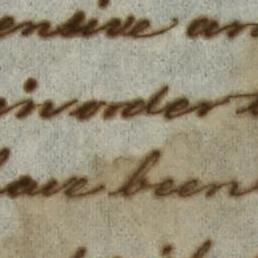 ensive an
in order t
have been